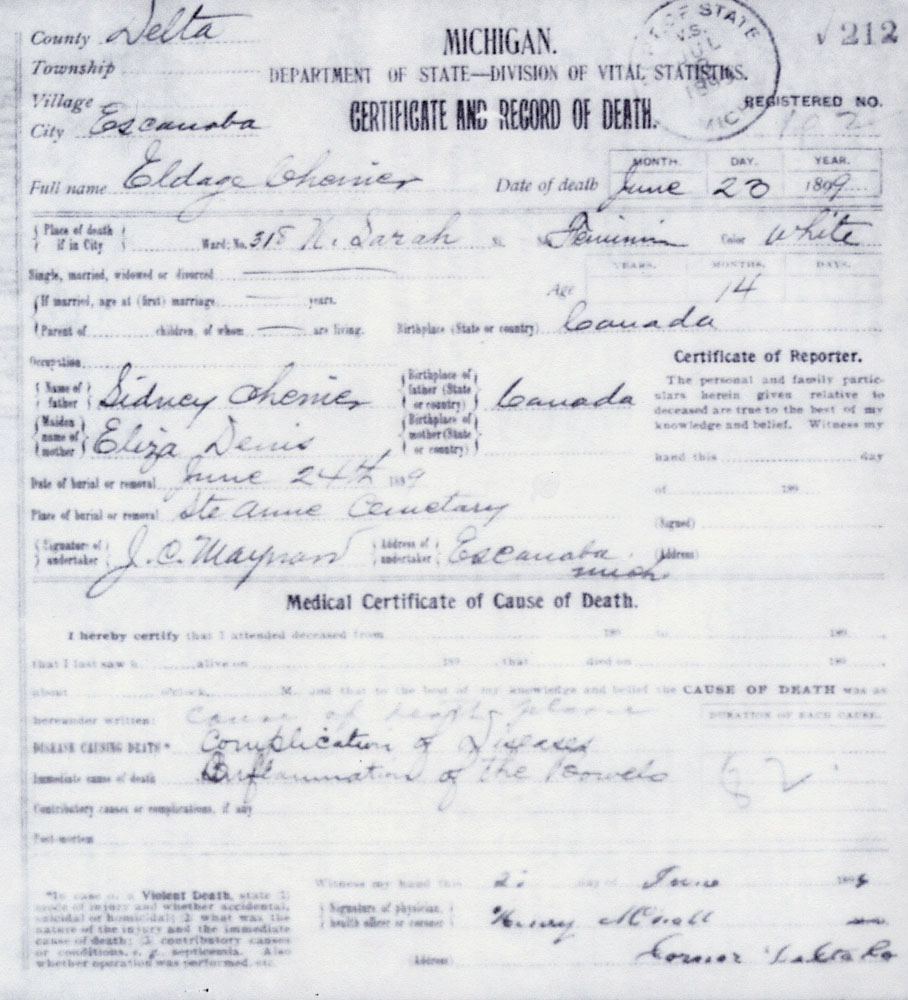 County Delta
MICHIGAN.
√ 212
Township
DEPARTMENT OF STATE—DIVISION OF VITAL STATISTICS.
Village
City Escanaba
CERTIFICATE AND RECORD OF DEATH.
REGISTERED NO.
Full name Eldage Chenier Date of death MONTH. June DAY. 23 YEAR. 1899
Place of death if in City Ward; No. 318 N. Sarah St. Feminin Color White
Single, married, widowed or divorced
YEARS. MONTHS. DAYS.
If married, age at (first) marriage years.
Age 14
Parent of children, of whom are living. Birthplace (State or country) Canada
Occupation
Certificate of Reporter.
Name of father Sidney Chenier Birthplace of father (State or country) Canada
The personal and family partic-
ulars herein given relative to
deceased are true to the best of my
knowledge and belief. Witness my
Maiden name of mother Eliza Denis Birthplace of mother (State or country)
hand this day
Date of burial or removal June 24th 1899
of 189
Place of burial or removal Ste Anne Cemetary
(Signed)
Signature of undertaker J. C. Maynard Address of undertaker Escanaba Mich.
(Address)
Medical Certificate of Cause of Death.
I hereby certify that I attended deceased from 189 to 189 ,
that I last saw h alive on 189 that died on 189 ,
about o'clock, M. and that to the best of my knowledge and belief the CAUSE OF DEATH was as
hereunder written: Cause of death please
DURATION OF EACH CAUSE.
DISEASE CAUSING DEATH* Complication of Diseases
Immediate cause of death Inflammation of the Bowels
82
Contributory causes or complications, if any
Post-mortem
Witness my hand this day of June
*In case of a Violent Death, state (1)
mode of injury and whether accidental,
suicidal or homicidal; (2) what was the
nature of the injury and the immediate
cause of death; (3) contributory causes
or conditions, e. g., septicemia. Also
whether operation was performed, etc.
Signature of physician, health officer or coroner Henry McNall
(Address) Coroner Delta Co